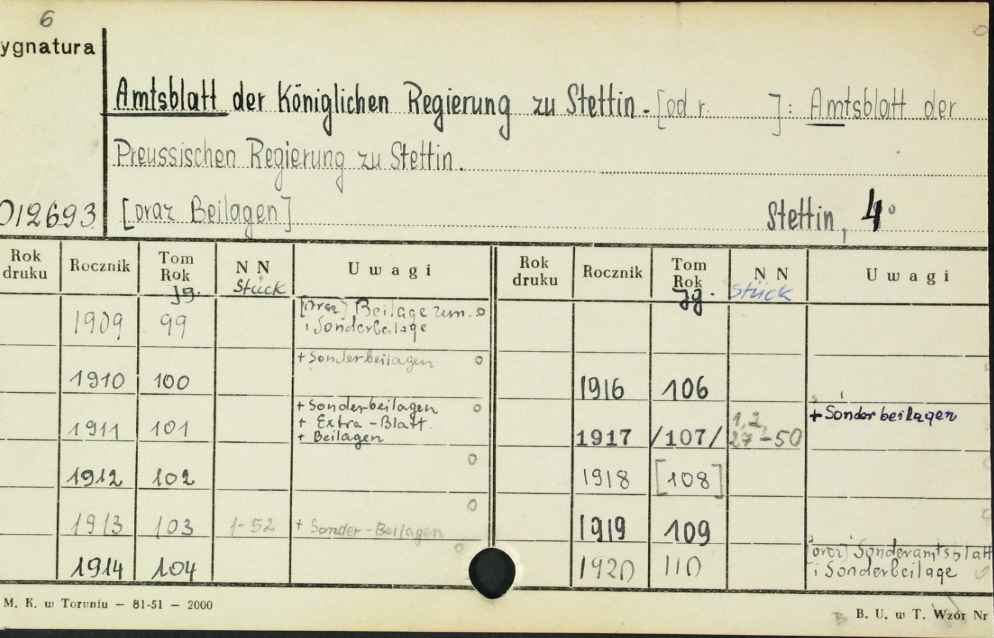 6
ygnatura
Amtsblatt der Königlichen Regierung zu Stettin. [od r. ]: Amtsblatt der
Preussischen Regierung zu Stettin.
012693 [oraz Beilagen] Stettin, 4°
Rok druku Rocznik Tom Rok Jg. N N Stück Uwagi Rok druku Rocznik Tom Rok Jg. N N Stück Uwagi
1909 99 [oraz] Beilage zum.
i Sonderbeilage
+ Sonderbeilagen
1910 100 1916 106
+ Sonderbeilagen + Sonderbeilagen
+ Extra-Blatt 1,2
1911 101 + Beilagen 1917 /107/ 27-50
1912 102 1918 [108]
1913 103 1-52 + Sonder-Beilagen 1919 109
[oraz] Sonderamtsblatt
1914 104 1920 110 i Sonderbeilage
M. K. w Toruniu — 81-51 — 2000 B. U. w T. Wzór Nr